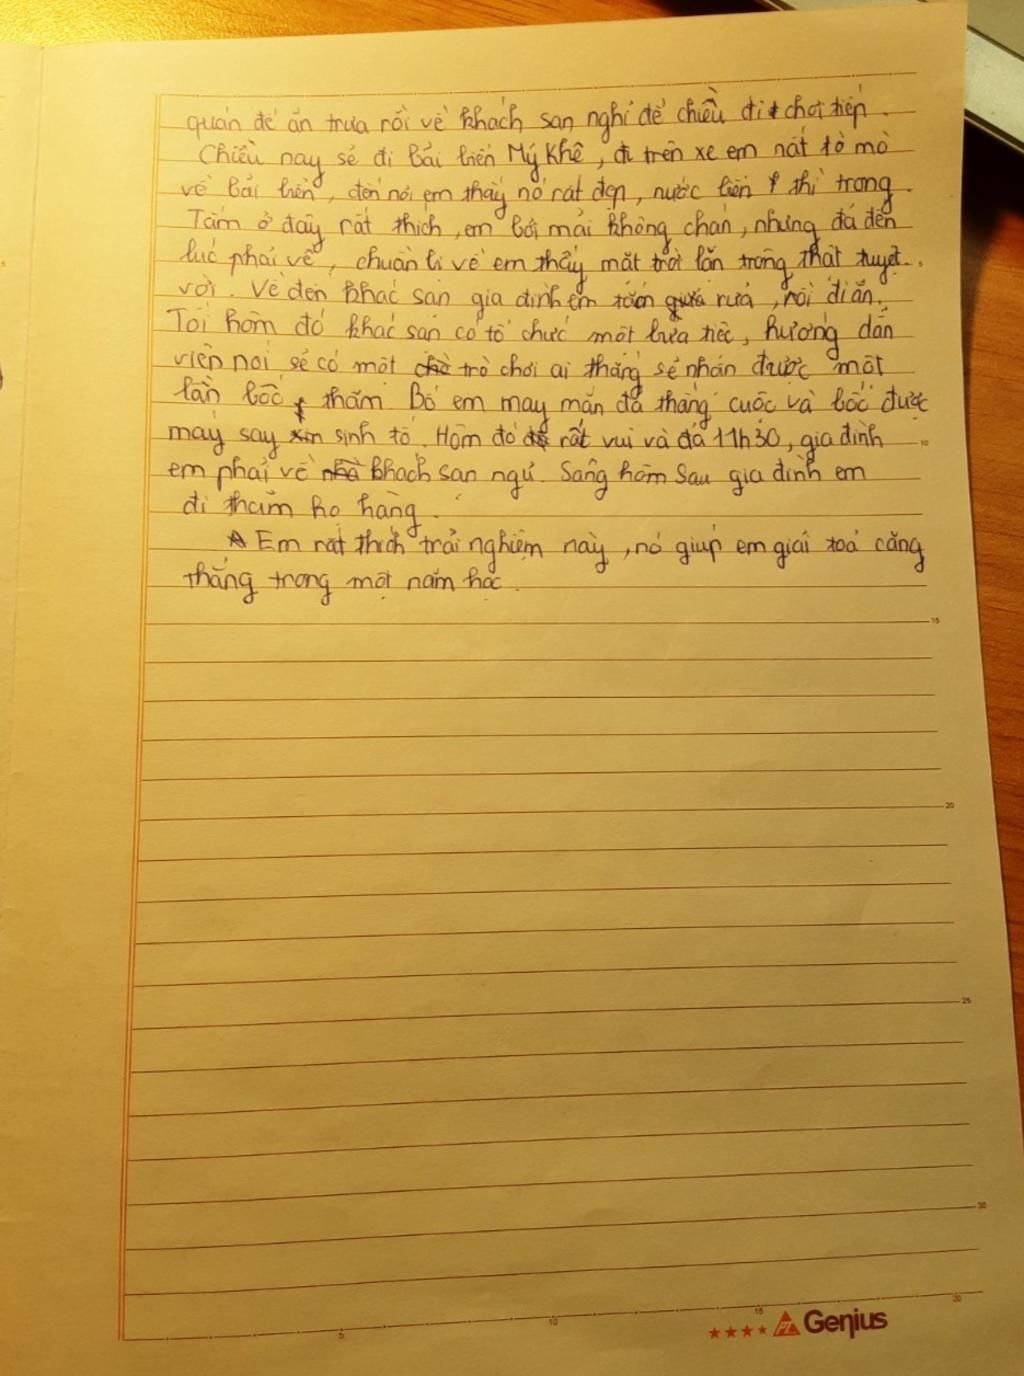 quán để ăn trưa rồi về khách sạn nghỉ để chiều đi chơi tiếp.
Chiều nay sẽ đi bãi biển Mỹ Khê, đi trên xe em rất tò mò
về bãi biển, đến nơi em thấy nó rất đẹp, nước biển thì trong.
Tắm ở đây rất thích, em bơi mải không chán, nhưng đã đến
lúc phải về, chuẩn bị về em thấy mặt trời lặn trông thật tuyệt
vời. Về đến khác sạn gia đình em tắm rửa, rồi đi ăn.
Tối hôm đó khác sạn có tổ chức một bữa tiệc, hướng dẫn
viên nói sẽ có một trò chơi ai thắng sẽ nhận được một
lần bốc thăm. Bố em may mắn đã thắng cuộc và bốc được
máy say sinh tố. Hôm đó rất vui và đã 11h30, gia đình
em phải về khách sạn ngủ. Sáng hôm sau gia đình em
đi thăm họ hàng.
Em rất thích trải nghiệm này, nó giúp em giải toả căng
thẳng trong một năm học.
10
15
20
25
30
5
10
15
20
FT Genius